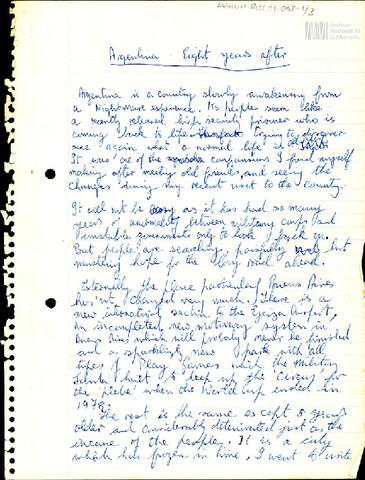 Archivo
Nacional de
la Memoria
Argentina - Eight years after
Argentina is a country slowly awakening from
a Nightmare experience. Its people seem like
a recently released high security prisoner who is
coming back to life trying to discover
once again what a normal life is
It was one of the comparisons I found myself
making after meeting old friends and seeing the
changes during my recent visit to the country.
It will not be easy as it has had so many
years of abnormality between military coups and
unstable governments only to look back on.
But people are searching, painfully but
mustering hope for the long road ahead.
Externally the place particularly Buenos Aires
hasn't changed very much. There is a
new international section to the Ezeiza Airport,
an incompleted new motorway system in
Buenos Aires which will probably never be finished
and a sparkling new park with all
types of Play Games which the Military
Junta built to keep up the 'Circus' for
the 'plebe' when the World Cup ended in
1978.
The rest is the same except 8 years
older and considerably deteriorated just as the
income of the people. It is a city
which has frozen in time, I went to write